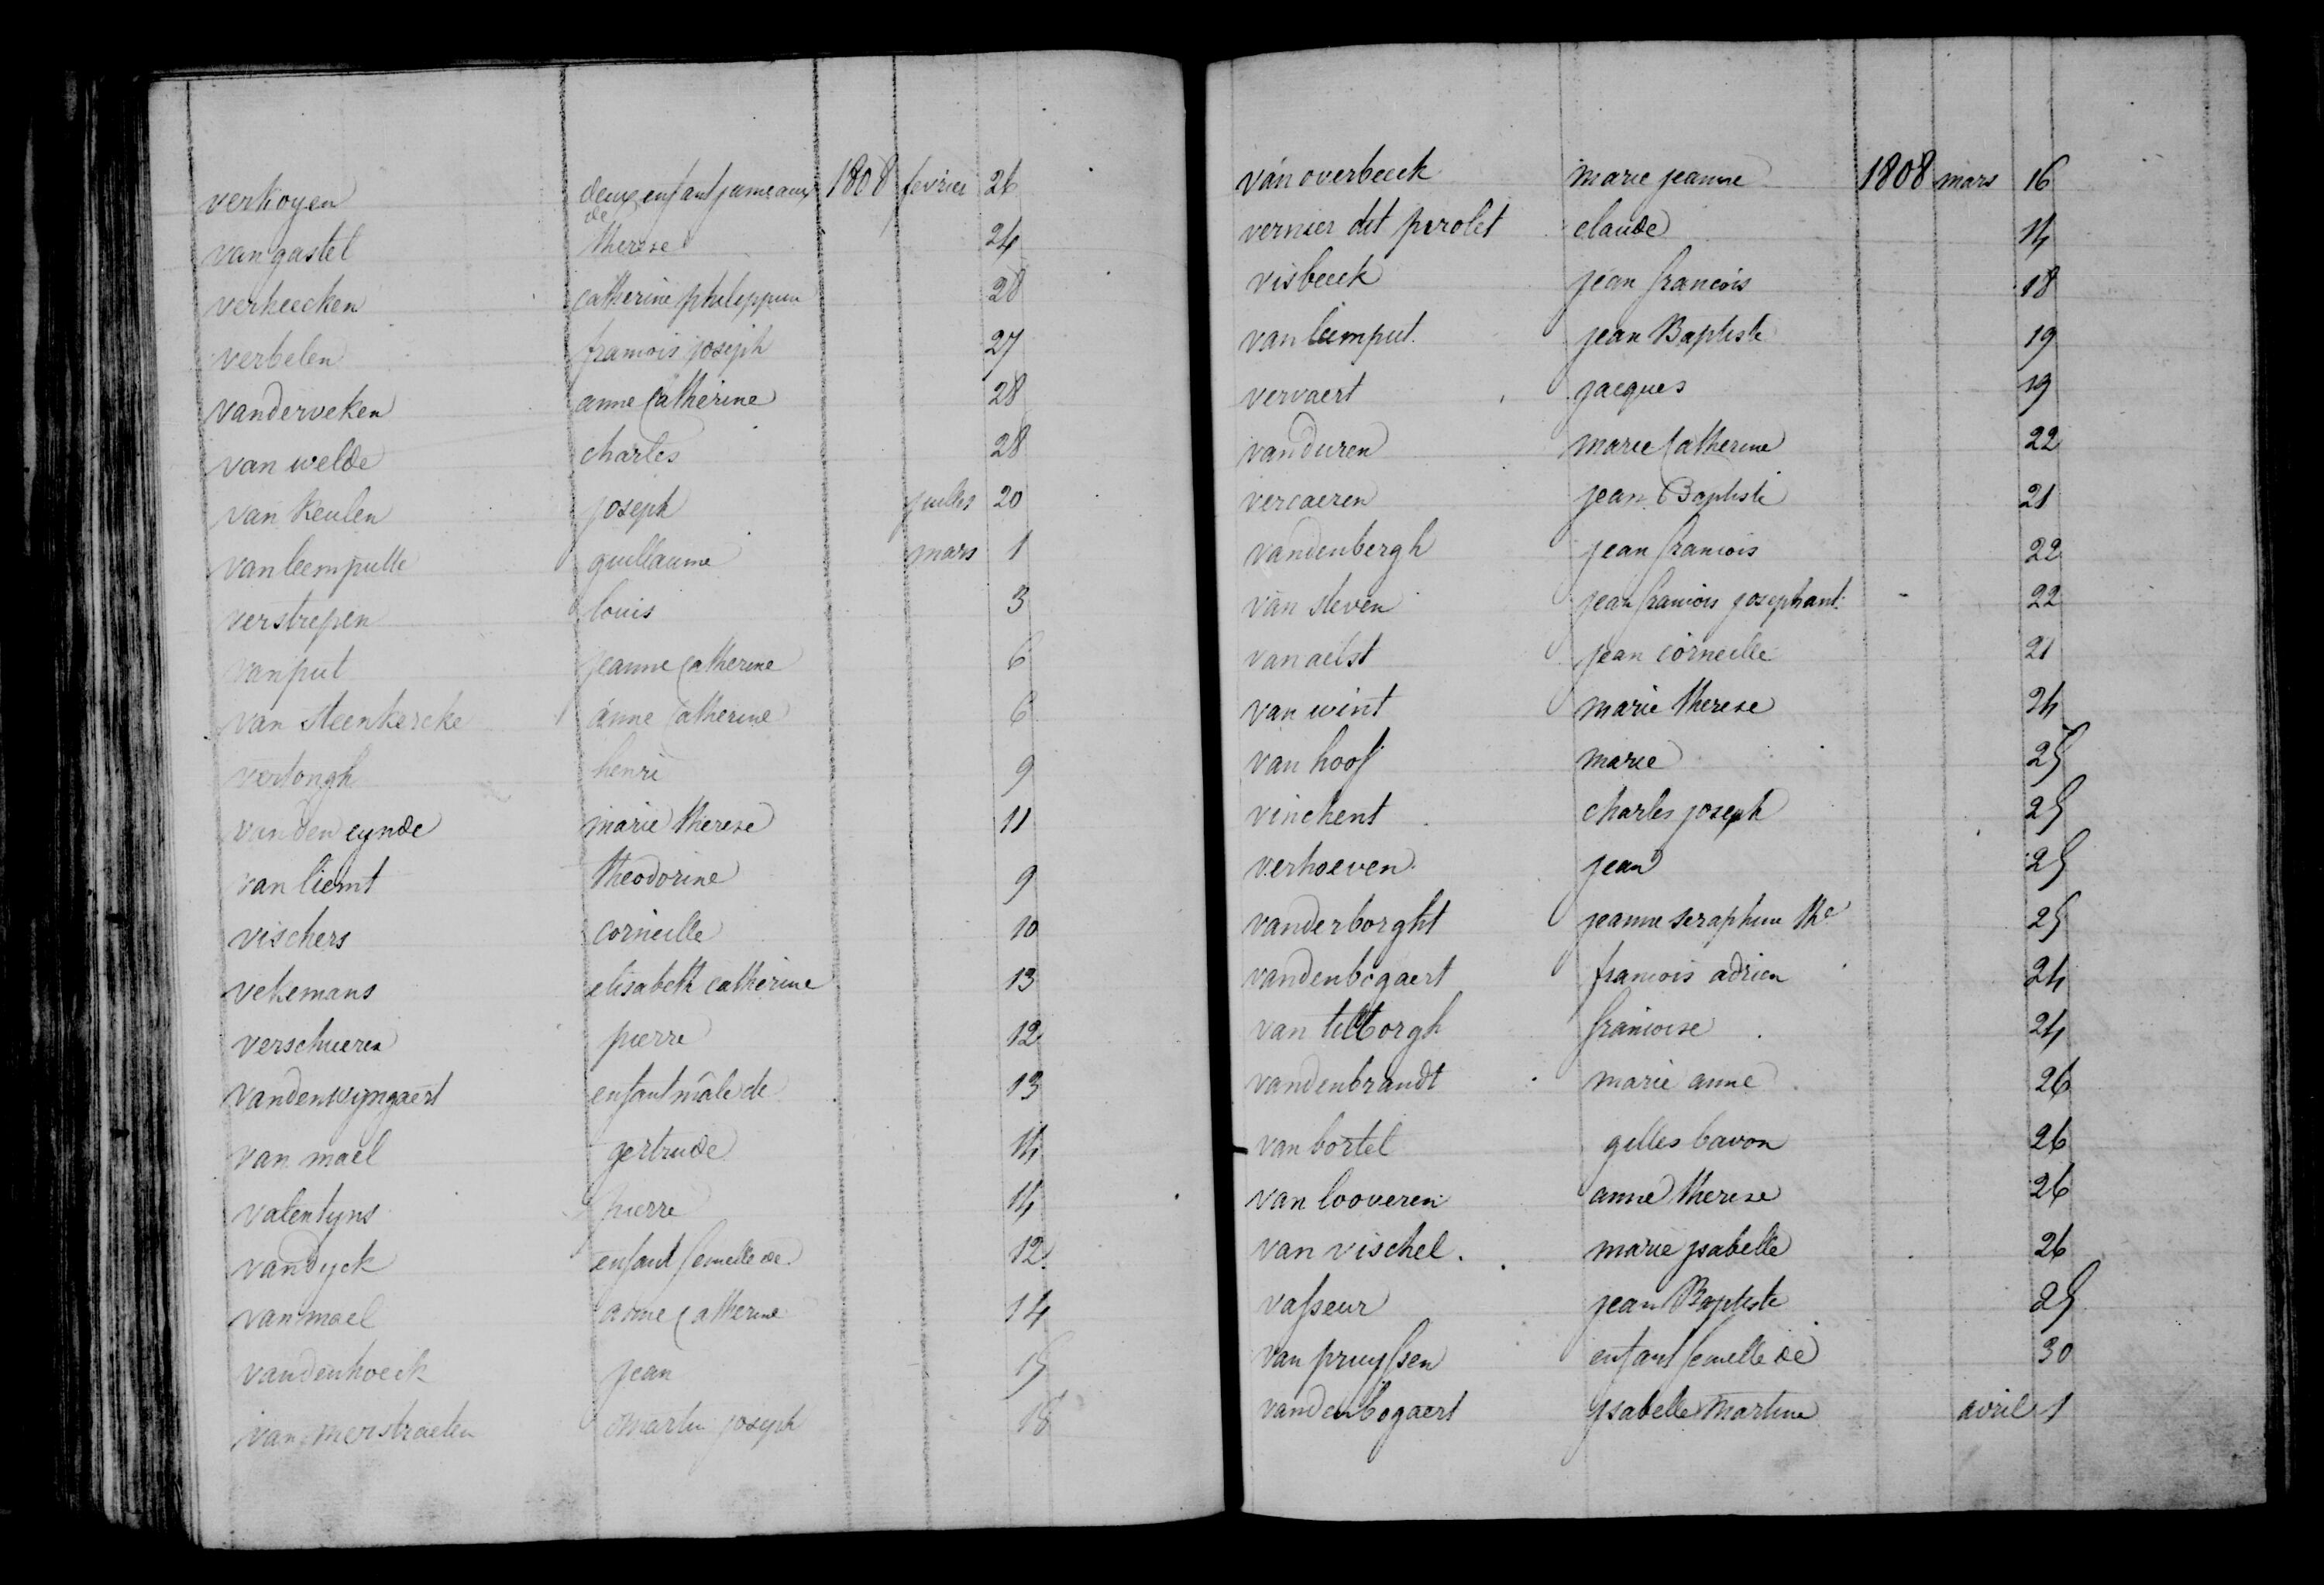 verhoyen deux enfant jumeaux de 1808 fevrier 26
van gastel therese 24
verheecken catherine philippine 28
verbelen francois joseph 27
vanderveken anne Catherine 28
van welde charles 28
van Keulen joseph juillet 20
van leemputte guillaume mars 1
verstrepen louis 3
vanput jeanne Catherine 6
van Steenkercke anne Catherine 6
vertongh henri 9
vanden eynde marie therese 11
van liemt theodorine 9
vischers corneille 10
vekemans elisabeth catherine 13
verschueren pierre 12
vandenwyngaert enfant mâle de 13
van mael gertrude 14
valentyns pierre 14
vandyck enfant femelle de 12
van mael anne Catherine 14
vandenhoeck jean 15
van merstraeten martin joseph 18
van overbeeck marie jeanne 1808 mars 16
vernier dit perolet claude 14
visbeeck jean francois 18
van leemput jean Baptiste 19
vervaert jacques 19
vanduren marie Catherine 22
vercaeren jean Baptiste 21
vandenbergh jean francois 22
van steven jean francois joseph ant. 22
van aelst jean corneille 21
van wint marie therese 24
van hoof marie 25
vinchent charles joseph 25
verhoeven jean 25
vanderborght jeanne seraphine the 25
vandenbogaert francois adrien 24
van tilborgh francoise 24
vandenbrandt marie anne 26
van bortel gilles bavon 26
van looveren anne therese 26
van vischel. marie ysabelle 26
vasseur jean Baptiste 25
van pruyssen enfant femelle de 30
vandenbogaert ysabelle Martine avril 1